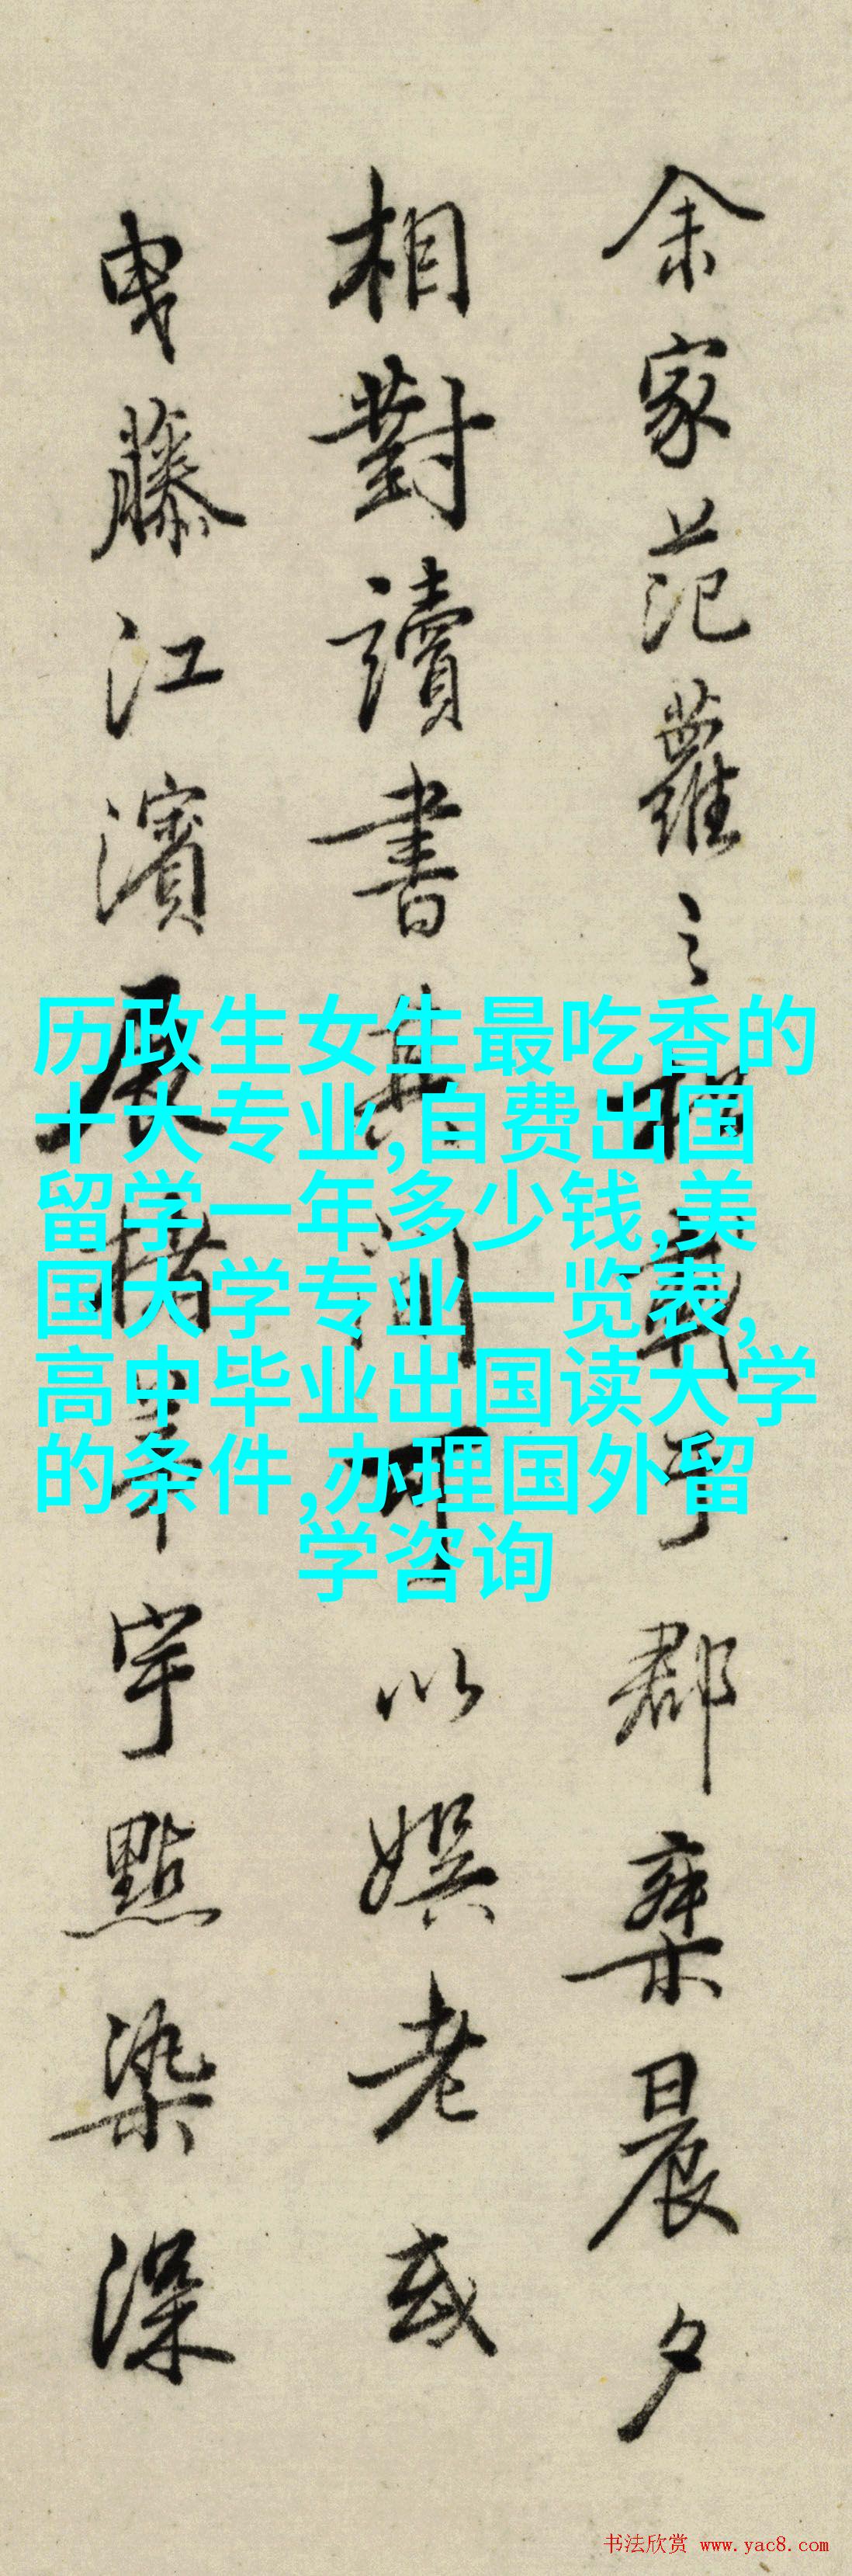 余家范蘿之
郡棐晨夕
相對讀書其間可以娯老或
曳藤江濱展楮茅宇點染深
历政生女生最吃香的
十大专业,自费出国
留学一年多少钱,美
国大学专业一览表,
高中毕业出国读大学
的条件,办理国外留
学咨询
书法欣赏 www.yac8.com